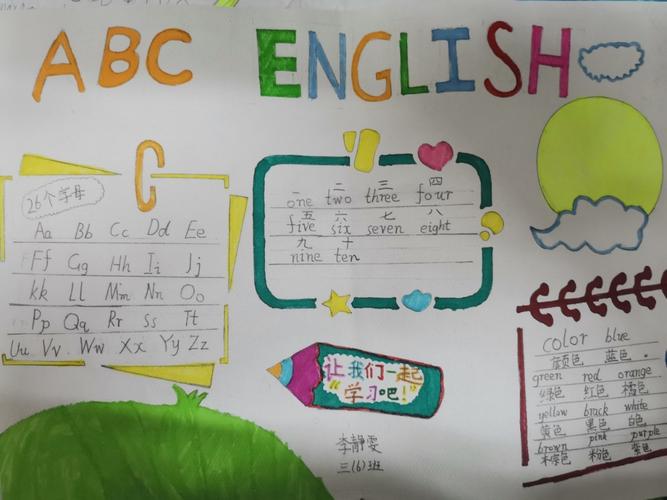 ABC ENGLISH
C
26个字母
Aa Bb Cc Dd Ee
Ff Gg Hh Ii Jj
kk Ll Mm Nn Oo
Pp Qq Rr Ss Tt
Uu Vv Ww Xx Yy Zz
一 二 三 四
one two three four
五 六 七 八
five six seven eight
九 十
nine ten
让我们一起
“学习吧!”
李静雯
三(6)班
color blue
颜色 蓝色
green red orange
绿色 红色 橘色
yellow brack white
黄色 黑色 白色
brown pink purple
木棕色 粉色 紫色